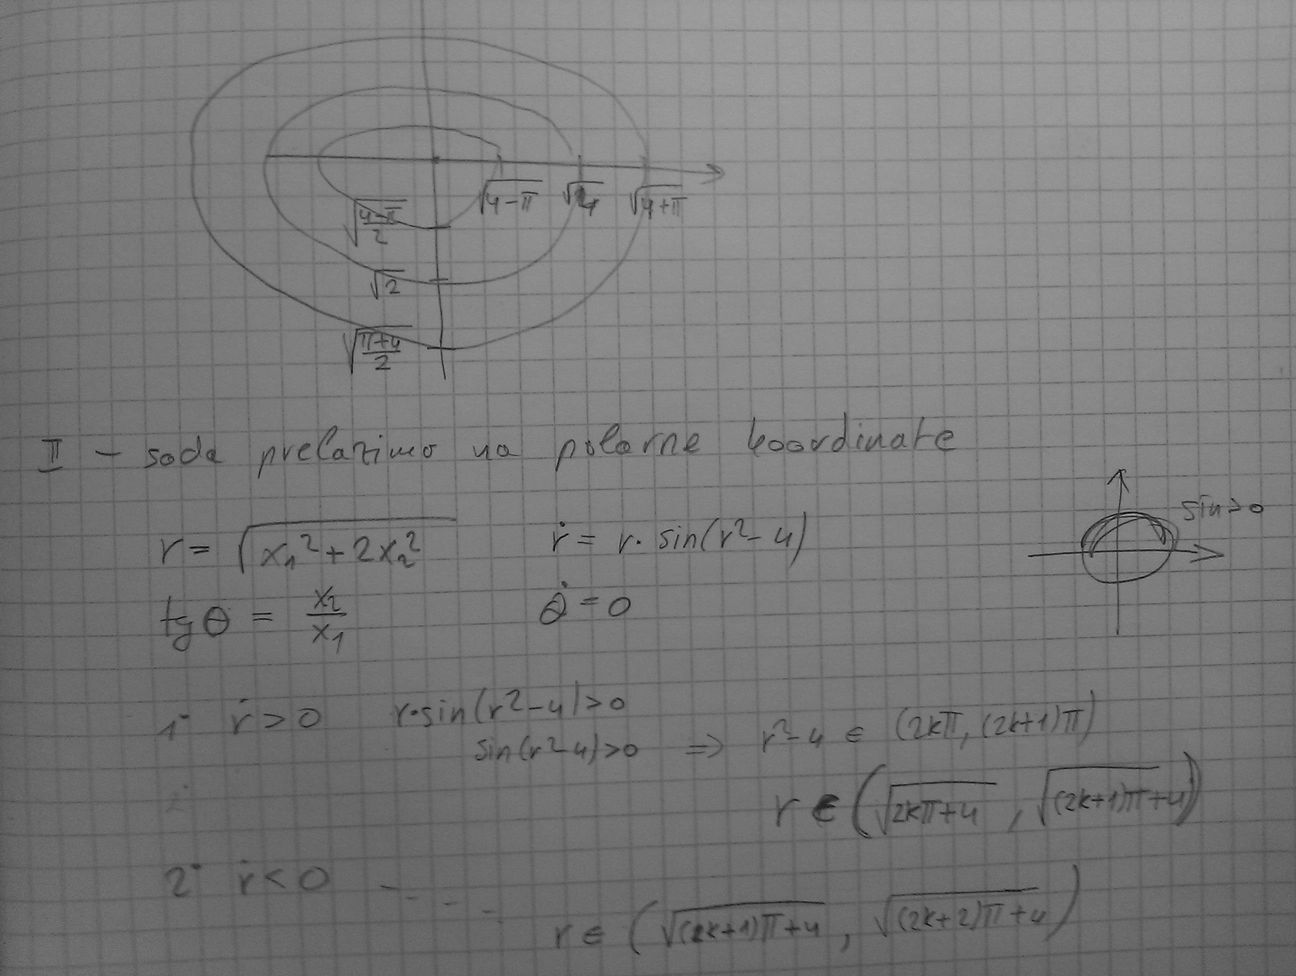 √(4-π) √4 √(4+π)
√((4-π)/2)
√2
√((π+4)/2)
II - sada prelazimo na polarne koordinate
sin>0
r = √(x₁² + 2x₂²) ṙ = r · sin(r² - 4)
tg θ = x₂/x₁ θ̇ = 0
1° ṙ > 0 r·sin(r²-4)>0
sin(r²-4)>0 ⇒ r²-4 ∈ (2kπ, (2k+1)π)
r ∈ (√(2kπ+4), √((2k+1)π+4))
2° ṙ < 0 - - -
r ∈ (√((2k+1)π+4), √((2k+2)π+4))